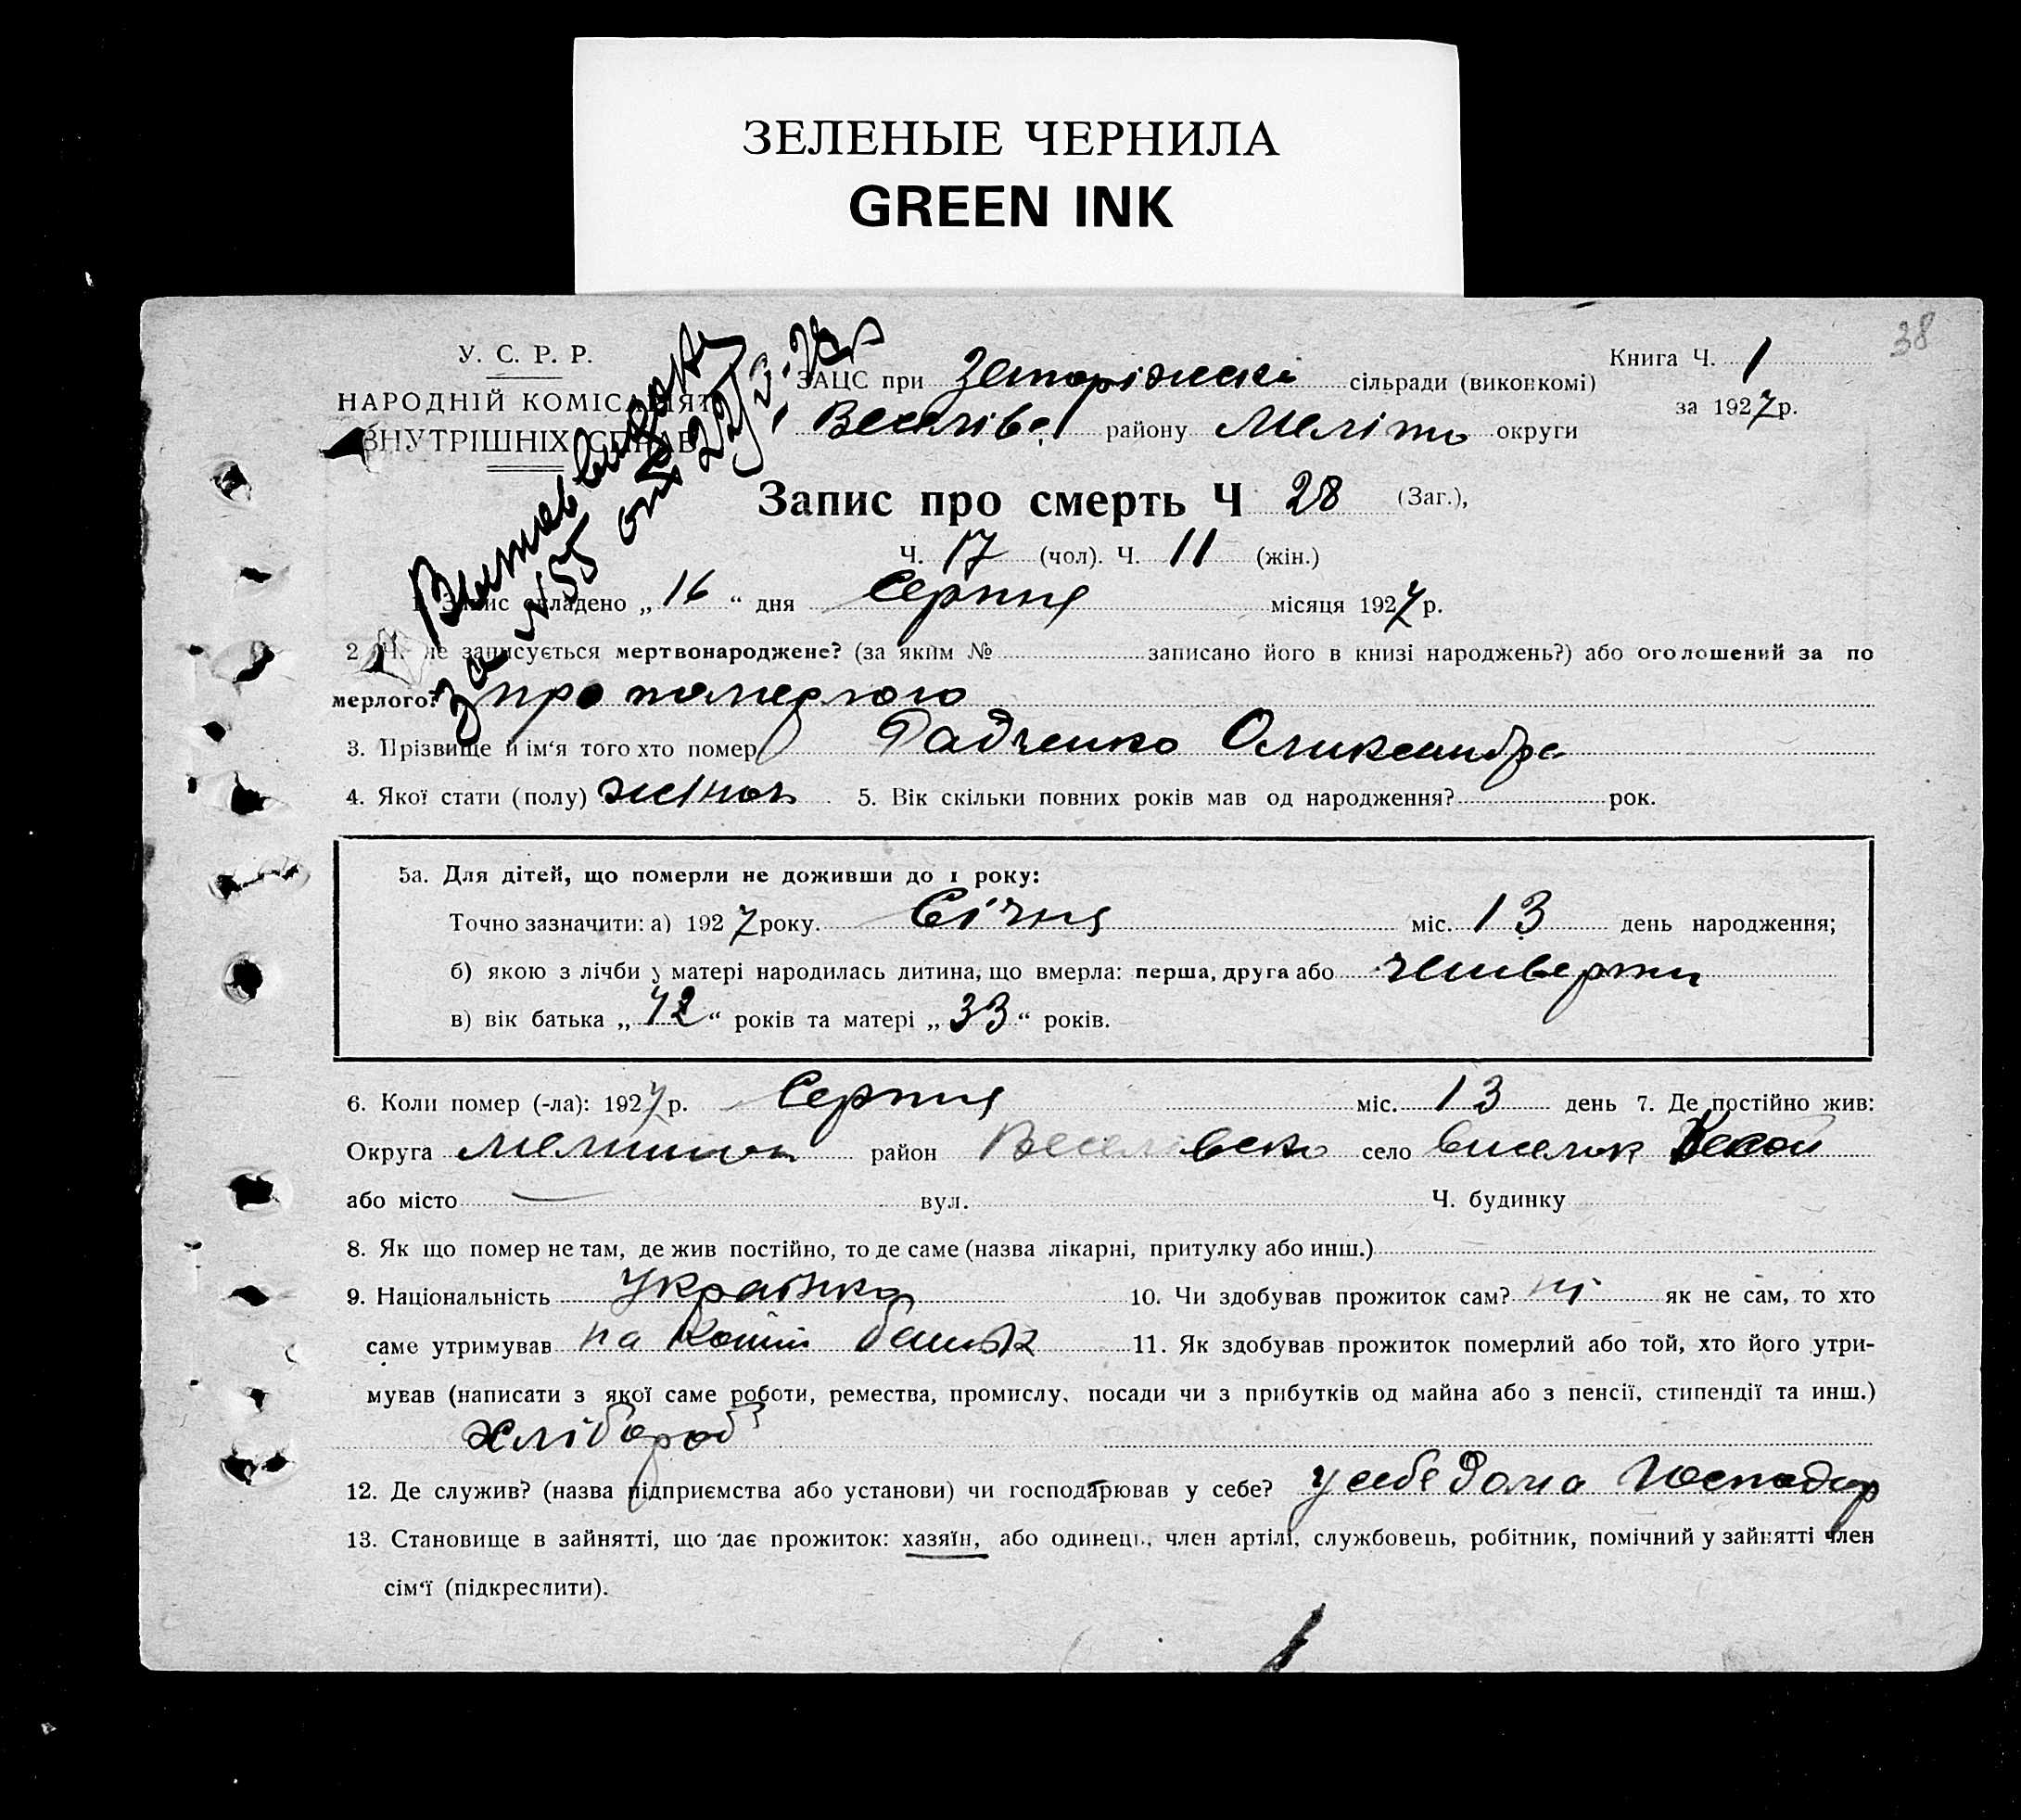 ЗЕЛЕНЫЕ ЧЕРНИЛА
GREEN INK
38
У. С. Р. Р.
НАРОДНІЙ КОМІСАРІЯТ
ВНУТРІШНІХ СПРАВ
за №55 от 22/2
ЗАЦС при Запоріжскі сільради (виконкомі)
Веселівс. району Меліто округи
Книга Ч. 1
за 1927 р.
Запис про смерть Ч 28 (Заг.),
Ч. 17 (чол). Ч. 11 (жін.)
1. Запис складено „ 16 “ дня Серпня місяця 1927 р.
2. Чи не записується мертвонароджене? (за яким № записано його в книзі народжень?) або оголошений за по
мерлого? про померлого
3. Прізвище й ім‘я того хто помер Радченко Олександра
4. Якої стати (полу) жіноч. 5. Вік скільки повних років мав од народження? рок.
5а. Для дітей, що померли не доживши до 1 року:
Точно зазначити: а) 1927 року. Січня міс. 13 день народження;
б) якою з лічби у матері народилась дитина, що вмерла: перша, друга або четверта
в) вік батька „ 42 “ років та матері „ 33 “ років.
6. Коли помер (-ла): 1927 р. Серпня міс. 13 день 7. Де постійно жив:
Округа район Веселівско село виселок
або місто — вул. Ч. будинку
8. Як що помер не там, де жив постійно, то де саме (назва лікарні, притулку або инш.)
9. Національність Українка 10. Чи здобував прожиток сам? ні як не сам, то хто
саме утримував на кошті батьк 11. Як здобував прожиток померлий або той, хто його утри-
мував (написати з якої саме роботи, ремества, промислу, посади чи з прибутків од майна або з пенсії, стипендії та инш.)
хлібороб
12. Де служив? (назва підприємства або установи) чи господарював у себе? у себе дома господар
13. Становище в зайнятті, що дає прожиток: хазяїн, або одинець, член артілі, службовець, робітник, помічний у зайнятті член
сім‘ї (підкреслити).